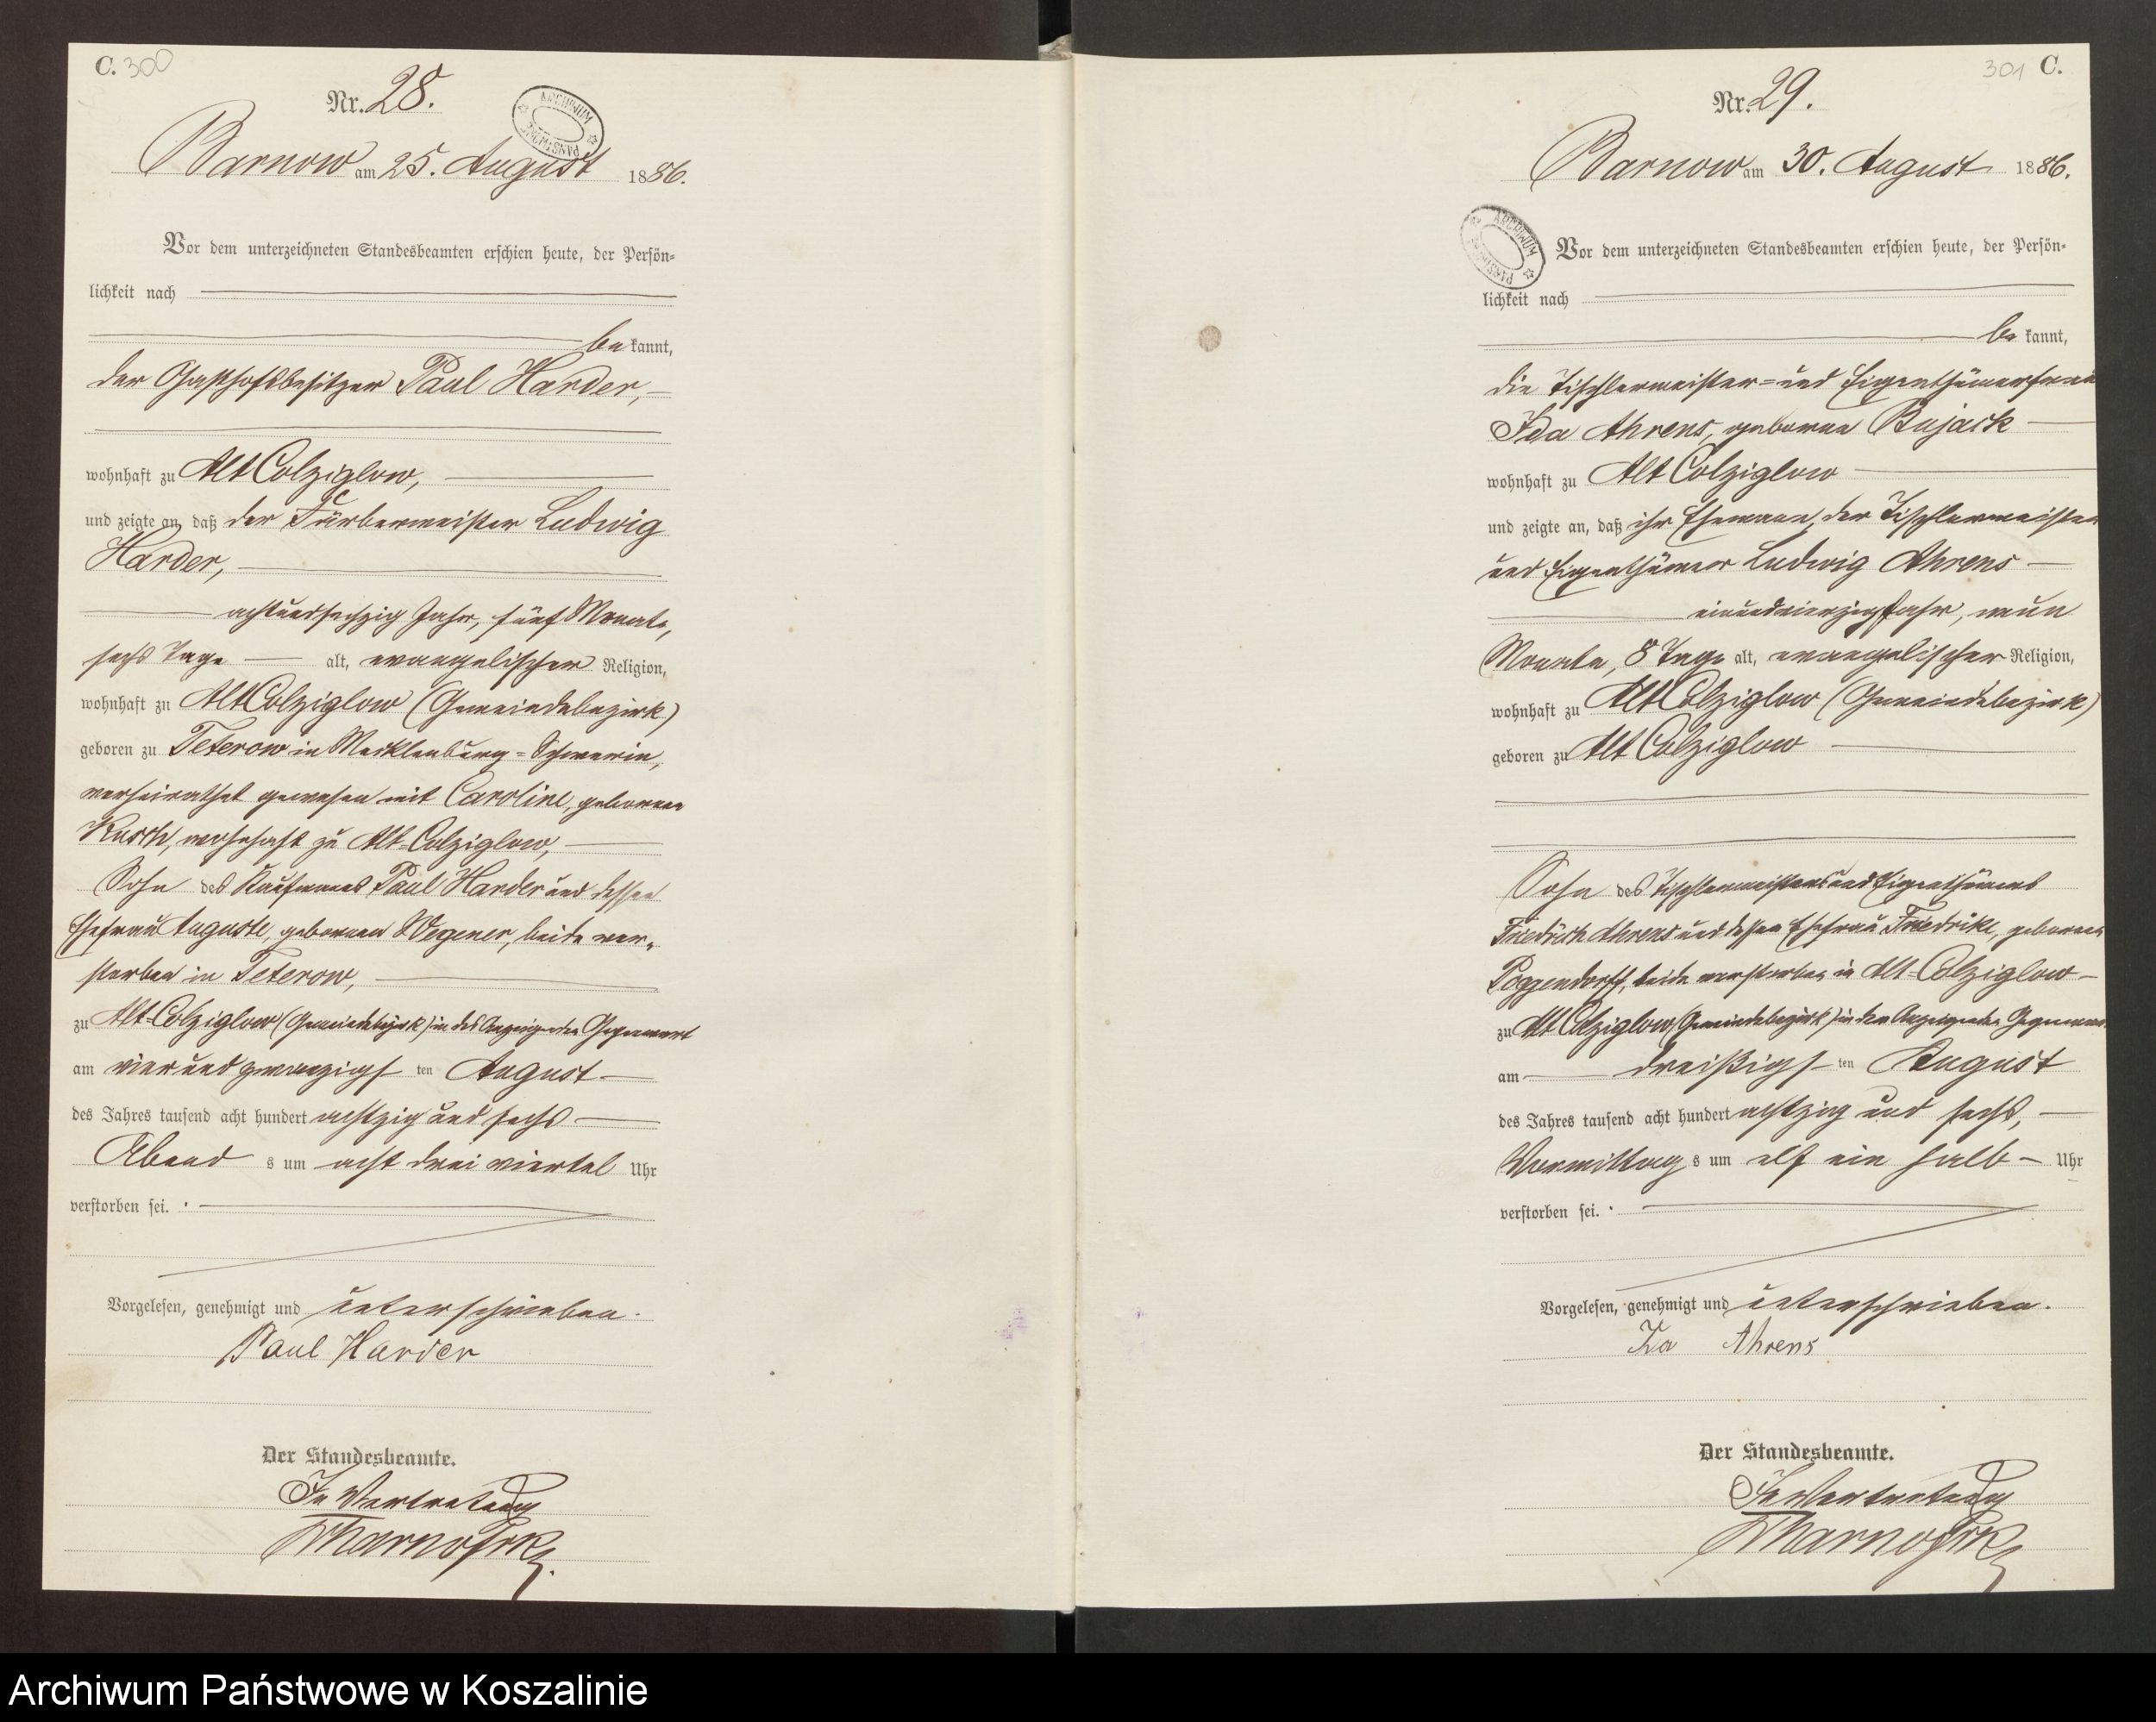 C. 300
Nr. 28.
ARCHIWUM
Barnow am 25. August 1886.
Vor dem unterzeichneten Standesbeamten erschien heute, der Persön-
lichkeit nach
be kannt,
der Gasthofsbesitzer Paul Harder,
wohnhaft zu Alt Colziglow,
und zeigte an, daß der Färbermeister Ludwig
Harder,
achtundsechzig Jahr, fünf Monate,
sechs Tage alt, evangelischer Religion,
wohnhaft zu Alt Colziglow (Gemeindebezirk)
geboren zu Teterow in Mecklenburg-Schwerin,
verheirathet gewesen mit Caroline, geborene
wohnhaft zu Alt-Colziglow,
Sohn des Kaufmanns Paul Harder und dessen
Ehefrau Auguste, geborenen Wegener, beide ver-
storben in Teterow,
zu Alt-Colziglow (Gemeindebezirk) in des Anzeigenden Gegenwart
am vier und zwanzigs ten August
des Jahres tausend acht hundert achtzig und sechs
Abend s um acht drei viertel Uhr
verstorben sei.
Vorgelesen, genehmigt und unterschrieben.
Paul Harder
Der Standesbeamte.
In Vertretung
301 C.
Nr. 29.
Barnow am 30. August 1886.
ARCHIWUM
Vor dem unterzeichneten Standesbeamten erschien heute, der Persön-
lichkeit nach
be kannt,
die Tischlermeister- und Eigenthümerfrau
Ida Ahrens, geborene Bujack
wohnhaft zu Alt Colziglow
und zeigte an, daß ihr Ehemann, der Tischlermeister
und Eigenthümer Ludwig Ahrens
einundvierzig Jahr, neun
Monate, 8 Tage alt, evangelischer Religion,
wohnhaft zu Alt Colziglow (Gemeindebezirk)
geboren zu Alt Colziglow
Sohn des Tischlermeisters und Eigenthümers
Friedrich Ahrens und dessen Ehefrau Friedrike, geborenen
Poggendorff, beide verstorben in Alt-Colziglow
zu Alt Colziglow (Gemeindebezirk) in der Anzeigenden Gegenwart
am dreißigs ten August
des Jahres tausend acht hundert achtzig und sechs,
Vormittag s um elf ein halb Uhr
verstorben sei.
Vorgelesen, genehmigt und unterschrieben.
Ida Ahrens
Der Standesbeamte.
In Vertretung
Archiwum Państwowe w Koszalinie